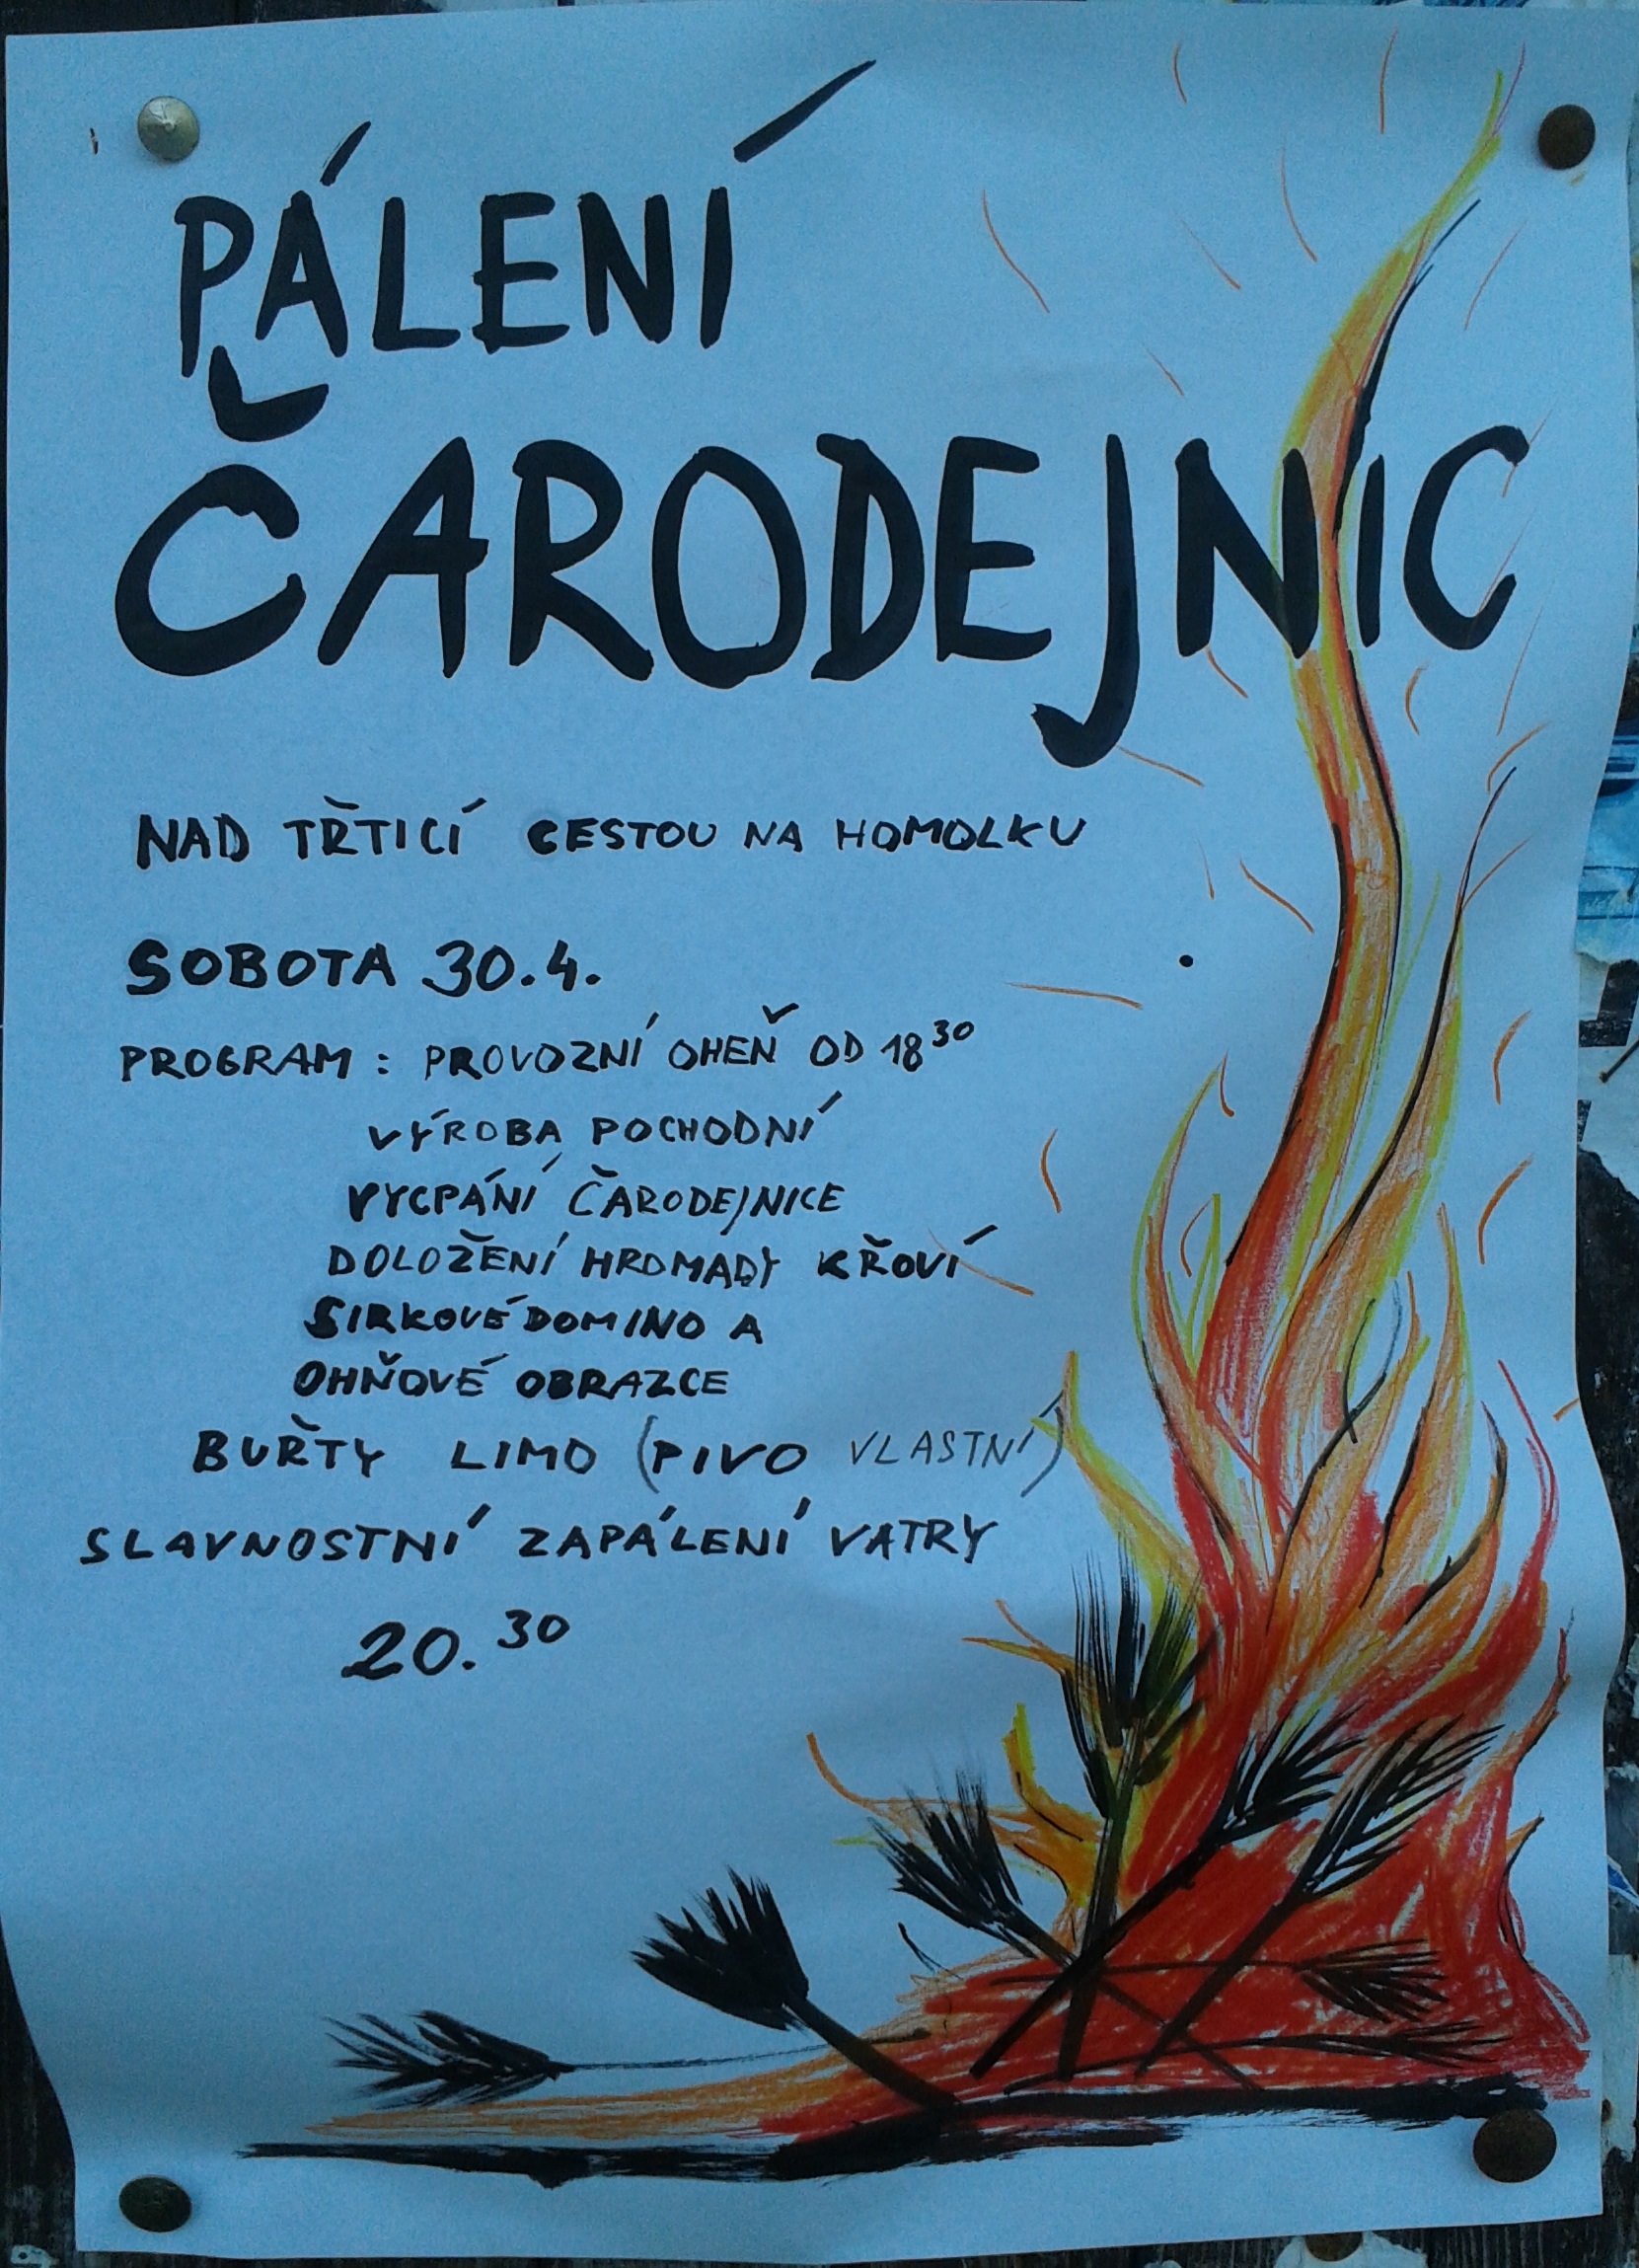 PÁLENÍ
ČARODEJNIC
NAD TŘTICÍ CESTOU NA HOMOLKU
SOBOTA 30.4.
PROGRAM: PROVOZNÍ OHEŇ OD 18 30
VÝROBA POCHODNÍ
VYCPÁNÍ ČARODEJNICE
DOLOŽENÍ HROMADY KŘOVÍ
SIRKOVÉ DOMINO A
OHŇOVÉ OBRAZCE
BUŘTY LIMO (PIVO VLASTNÍ)
SLAVNOSTNÍ ZAPÁLENÍ VATRY
20.30